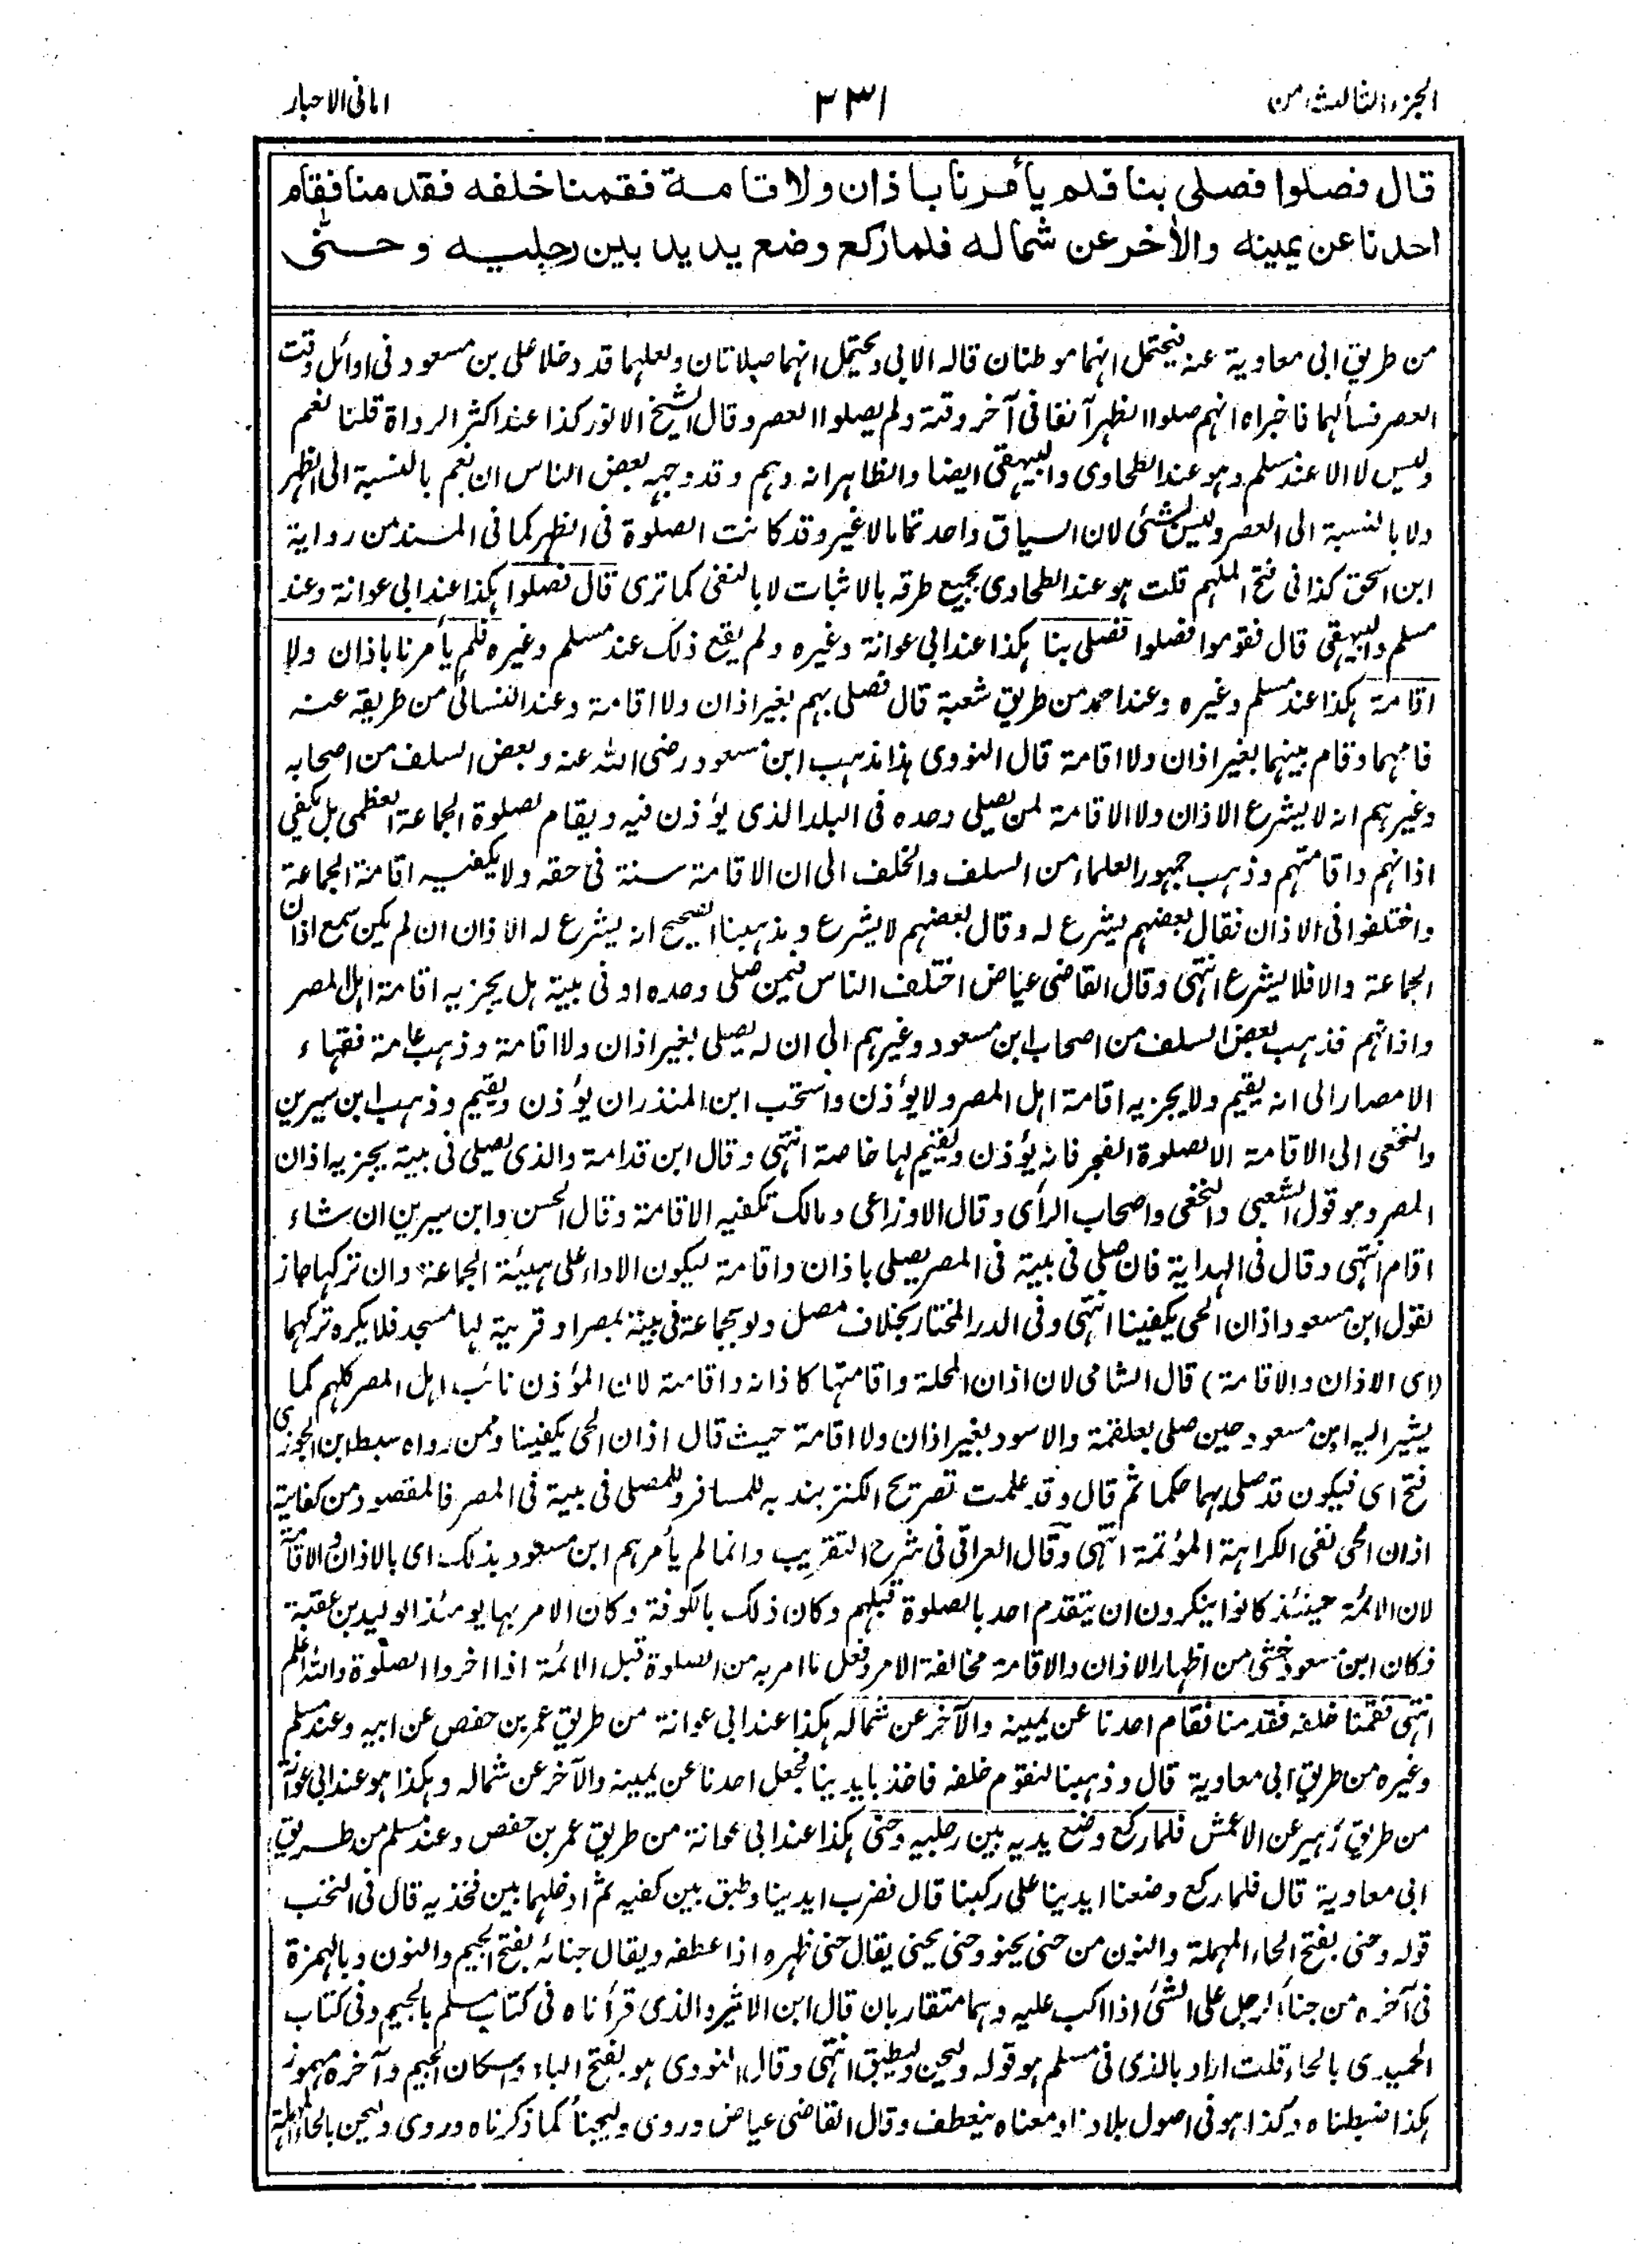 الجزء الثالث من
٢٣١
امانى الاحبار
قال فصلوا فصلى بنا فلم يأمرنا باذان ولا قامة فقمنا خلفه فقدمنا فقام
احدنا عن يمينه والأخر عن شماله فلما ركع وضع يديه بين رجليه وحنى
من طريق ابى معاوية عنه فيحتمل انهما موطنان قاله الابى ويحتمل انهما صلاتان ولعلهما قد دخلا على بن مسعود فى اوائل وقت
العصر فسألهما فاخبراه انهم صلوا الظهر آنفا فى آخر وقته ولم يصلوا العصر وقال الشيخ الانور كذا عند اكثر الرواة قلنا نعم
وليس لا الا عند مسلم وهو عند الطحاوى والبيهقى ايضا والظاهر انه وهم وقد وجهه بعض الناس ان نعم بالنسبة الى الظهر
ولا بالنسبة الى العصر وليس بشئى لان السياق واحد تماما لا غير وقد كانت الصلوة فى الظهر كما فى المسند من رواية
ابن اسحق كذا فى فتح الملهم قلت هو عند الطحاوى بجميع طرقه بالاثبات لا بالنفى كما ترى قال فصلوا هكذا عند ابى عوانة وعند
مسلم والبيهقى قال فقوموا فصلوا فصلى بنا هكذا عند ابى عوانة وغيره ولم يقع ذلك عند مسلم وغيره فلم يأمرنا باذان ولا
اقامة هكذا عند مسلم وغيره وعند احمد من طريق شعبة قال فصلى بهم بغير اذان ولا اقامة وعند النسائى من طريقه عنه
فامهما وقام بينهما بغير اذان ولا اقامة قال النووى هذا مذهب ابن مسعود رضى الله عنه وبعض السلف من اصحابه
وغيرهم انه لا يشرع الاذان ولا الاقامة لمن يصلى وحده فى البلد الذى يؤذن فيه ويقام لصلوة الجماعة العظمى بل يكفى
اذانهم واقامتهم وذهب جمهور العلماء من السلف والخلف الى ان الاقامة سنة فى حقه ولا يكفيه اقامة الجماعة
واختلفوا فى الاذان فقال بعضهم يشرع له وقال بعضهم لا يشرع ومذهبنا الصحيح انه يشرع له الاذان ان لم يكن سمع اذان
الجماعة والا فلا يشرع انتهى وقال القاضى عياض اختلف الناس فيمن صلى وحده او فى بيته هل يجزيه اقامة اهل المصر
واذانهم فذهب بعض السلف من اصحاب ابن مسعود وغيرهم الى ان له يصلى بغير اذان ولا اقامة وذهب عامة فقهاء
الامصار الى انه يقيم ولا يجزيه اقامة اهل المصر ولا يؤذن واستحب ابن المنذر ان يؤذن ويقيم وذهب ابن سيرين
والنخعى الى الاقامة الا لصلوة الفجر فانه يؤذن ويقيم لها خاصة انتهى وقال ابن قدامة والذى يصلى فى بيته يجزيه اذان
المصر وهو قول الشعبى والنخعى واصحاب الرأى وقال الاوزاعى ومالك تكفيه الاقامة وقال الحسن وابن سيرين ان شاء
اقام انتهى وقال فى الهداية فان صلى فى بيته فى المصر يصلى باذان واقامة ليكون الاداء على هيئة الجماعة وان تركها جاز
لقول ابن مسعود اذان الحى يكفينا انتهى وفى الدر المختار بخلاف مصل ولو بجماعة فى بيته بمصر او قرية لها مسجد فلا يكره تركهما
(اى الاذان والاقامة) قال الشامى لان اذان المحلة واقامتها كاذانه واقامته لان المؤذن نائب اهل المصر كلهم كما
يشير اليه ابن مسعود حين صلى بعلقمة والاسود بغير اذان ولا اقامة حيث قال اذان الحى يكفينا وممن رواه سبط ابن الجوزى
فتح اى فيكون قد صلى بهما حكما ثم قال وقد علمت تصريح الكنز بندبه للمسافر وللمصلى فى بيته فى المصر فالمقصود من كفاية
اذان الحى نفى الكراهة المؤثمة انتهى وقال العراقى فى شرح التقريب وانما لم يأمرهم ابن مسعود بذلك اى بالاذان والاقامة
لان الائمة حينئذ كانوا ينكرون ان يتقدم احد بالصلوة قبلهم وكان ذلك بالكوفة وكان الامر بها يومئذ الوليد بن عقبة
فكان ابن مسعود خشى من اظهار الاذان والاقامة مخالفة الامر ففعل ما امر به من الصلوة قبل الائمة اذا اخروا الصلوة والله اعلم
انتهى فقمنا خلفه فقدمنا فقام احدنا عن يمينه والآخر عن شماله هكذا عند ابى عوانة من طريق عمر بن حفص عن ابيه وعند مسلم
وغيره من طريق ابى معاوية قال وذهبنا لنقوم خلفه فاخذ بايدينا فجعل احدنا عن يمينه والآخر عن شماله وهكذا هو عند ابى عوانة
من طريق زهير عن الاعمش فلما ركع وضع يديه بين رجليه وحنى هكذا عند ابى عوانة من طريق عمر بن حفص وعند مسلم من طريق
ابى معاوية قال فلما ركع وضعنا ايدينا على ركبنا قال فضرب ايدينا وطبق بين كفيه ثم ادخلهما بين فخذيه قال فى النخب
قوله وحنى بفتح الحاء المهملة والنون من حنى يحنو وحنى يحنى يقال حنى ظهره اذا عطفه ويقال جنائه بفتح الجيم والنون وبالهمزة
فى آخره من جنأ الرجل على الشئى اذا اكب عليه وهما متقاربان قال ابن الاثير والذى قرأناه فى كتاب مسلم بالجيم وفى كتاب
الحميدى بالحاء قلت اراد بالذى فى مسلم هو قوله وليحن وليطبق انتهى وقال النووى هو بفتح الياء واسكان الجيم وآخره مهموز
هكذا ضبطناه وكذا هو فى اصول بلادنا ومعناه ينعطف وقال القاضى عياض وروى وليجنأ كما ذكرناه وروى وليحن بالحاء المهملة